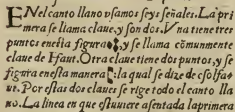 EN el canto llano vsamos seys señales. La pri
mera se llama claue, y son dos. Vna tiene tres
puntos enesta figura, y se llama cõmunmente
claue de Ffaut. Otra claue tiene dos puntos, y se
figura enesta manera: la qual se dize de c solfa
ut. Por estas dos claues se rige todo el canto lla
no. La linea en que estuuiere asentada la primera